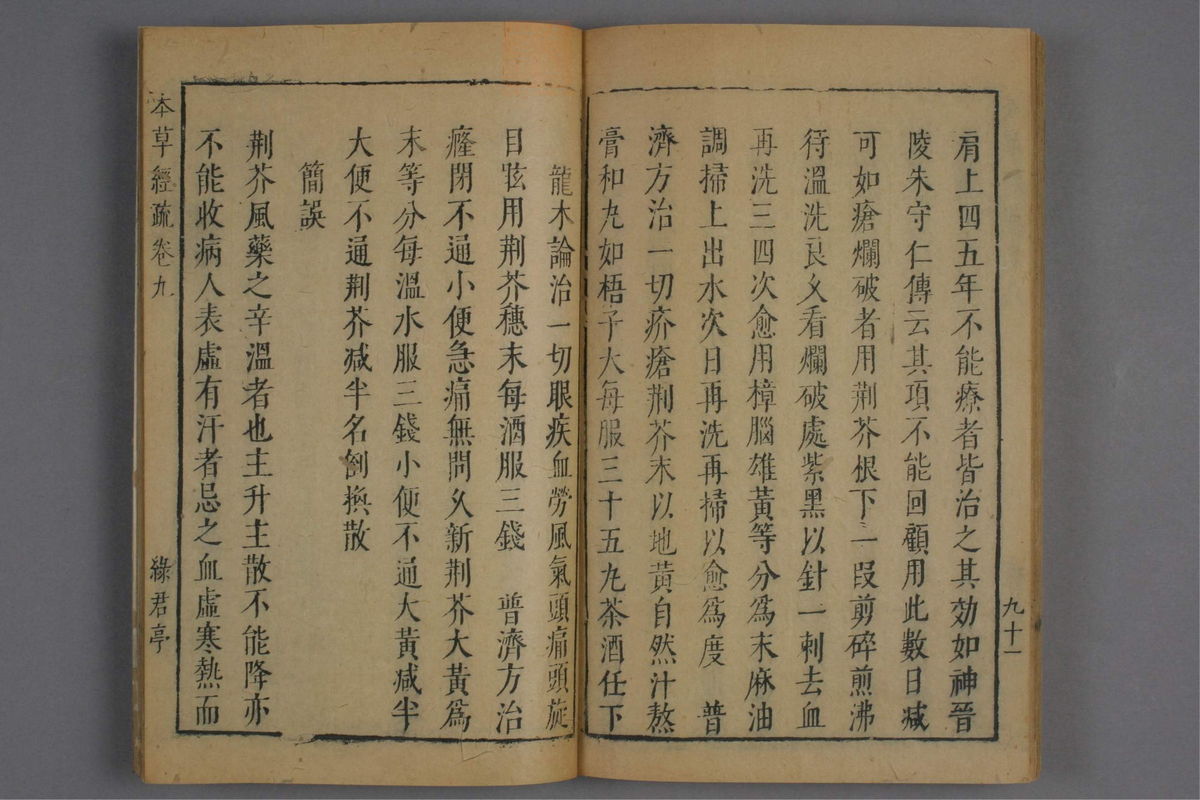 肩上四五年不能療者皆治之其効如神晉
陵朱守仁傳云其項不能回顧用此數日減
可如瘡爛破者用荆芥根下一段剪碎煎沸
待溫洗良乆看爛破處紫黑以針一刺去血
再洗三四次愈用樟腦雄黃等分爲末麻油
調掃上出水次日再洗再掃以愈爲度　普
濟方治一切疥瘡荆芥末以地黃自然汁熬
膏和丸如梧子大每服三十五丸茶酒任下
九十一
龍木論治一切眼疾血勞風氣頭痛頭旋
目眩用荆芥穗末每酒服三錢　普濟方治
癃閉不通小便急痛無問乆新荆芥大黃爲
末等分每溫水服三錢小便不通大黃减半
大便不通荆芥减半名倒換散
簡誤
荆芥風藥之辛溫者也主升主散不能降亦
不能收病人表虛有汗者忌之血虛寒熱而
本草經疏卷九
綠君亭